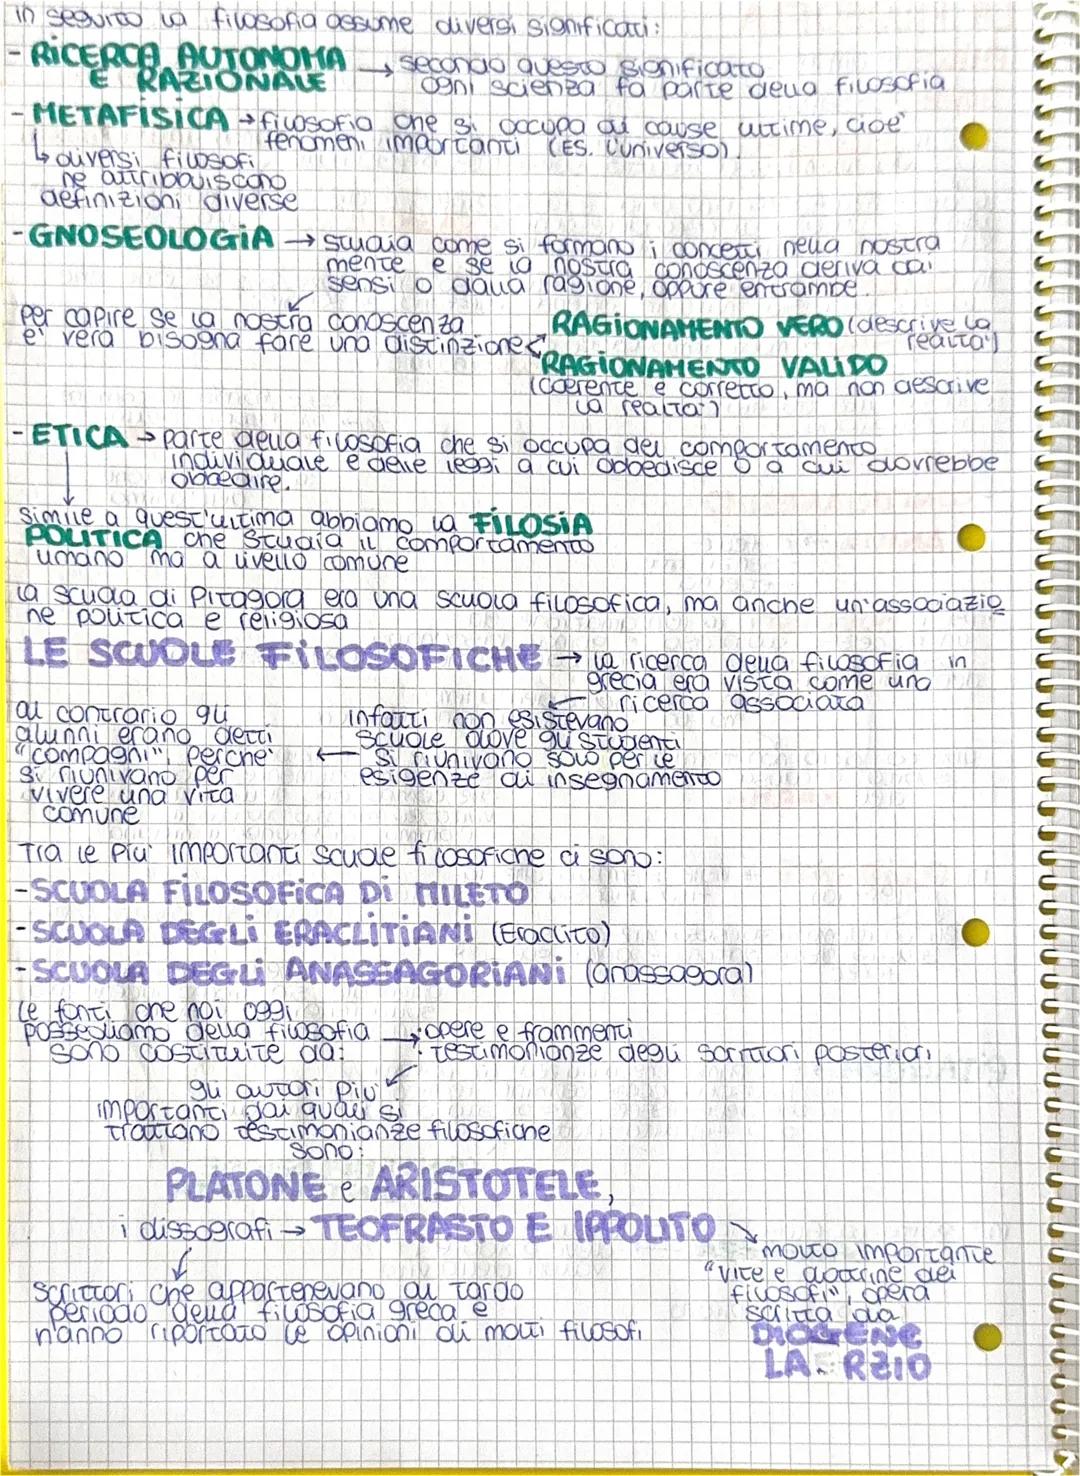 in seguito la filosofia assume diversi significati:
- RICERCA AUTONOMA E RAZIONALE → secondo questo significato ogni scienza fa parte della filosofia
- METAFISICA → filosofia che si occupa di cause ultime, cioè fenomeni importanti (ES. l'universo).
↳ diversi filosofi
ne attribuiscono
definizioni diverse
- GNOSEOLOGIA → studia come si formano i concetti nella nostra
mente e se la nostra conoscenza deriva dai
sensi o dalla ragione, oppure entrambe.
per capire se la nostra conoscenza
e' vera bisogna fare una distinzione <
RAGIONAMENTO VERO (descrive la
realtà)
RAGIONAMENTO VALIDO
(coerente e corretto, ma non descrive
la realtà)
- ETICA → parte della filosofia che si occupa del comportamento
individuale e delle leggi a cui obbedisce o a cui dovrebbe
obbedire.
simile a quest'ultima abbiamo la FILOSIA
POLITICA che studia il comportamento
umano ma a livello comune
la scuola di Pitagora era una scuola filosofica, ma anche un'associazio
ne politica e religiosa
LE SCUOLE FILOSOFICHE → la ricerca della filosofia in
grecia era vista come una
ricerca associata
infatti non esistevano
scuole dove gli studenti
si riunivano solo per le
esigenze di insegnamento
al contrario gli
alunni erano detti
"compagni", perche'
si riunivano per
vivere una vita
comune
Tra le più importanti scuole filosofiche ci sono:
- SCUOLA FILOSOFICA DI MILETO
- SCUOLA DEGLI ERACLITIANI (Eraclito)
- SCUOLA DEGLI ANASSAGORIANI (anassagora)
le fonti che noi oggi
possediamo della filosofia
sono costituite da:
→ · opere e frammenti
· testimonianze degli scrittori posteriori
gli autori più
importanti dai quali si
trattano testimonianze filosofiche
sono:
PLATONE e ARISTOTELE,
i dissografi → TEOFRASTO E IPPOLITO
scrittori che appartenevano al tardo
periodo della filosofia greca e
hanno riportato le opinioni di molti filosofi
molto importante
"vite e dottrine dei
filosofi", opera
scritta da
DIOGENE
LA RZIO